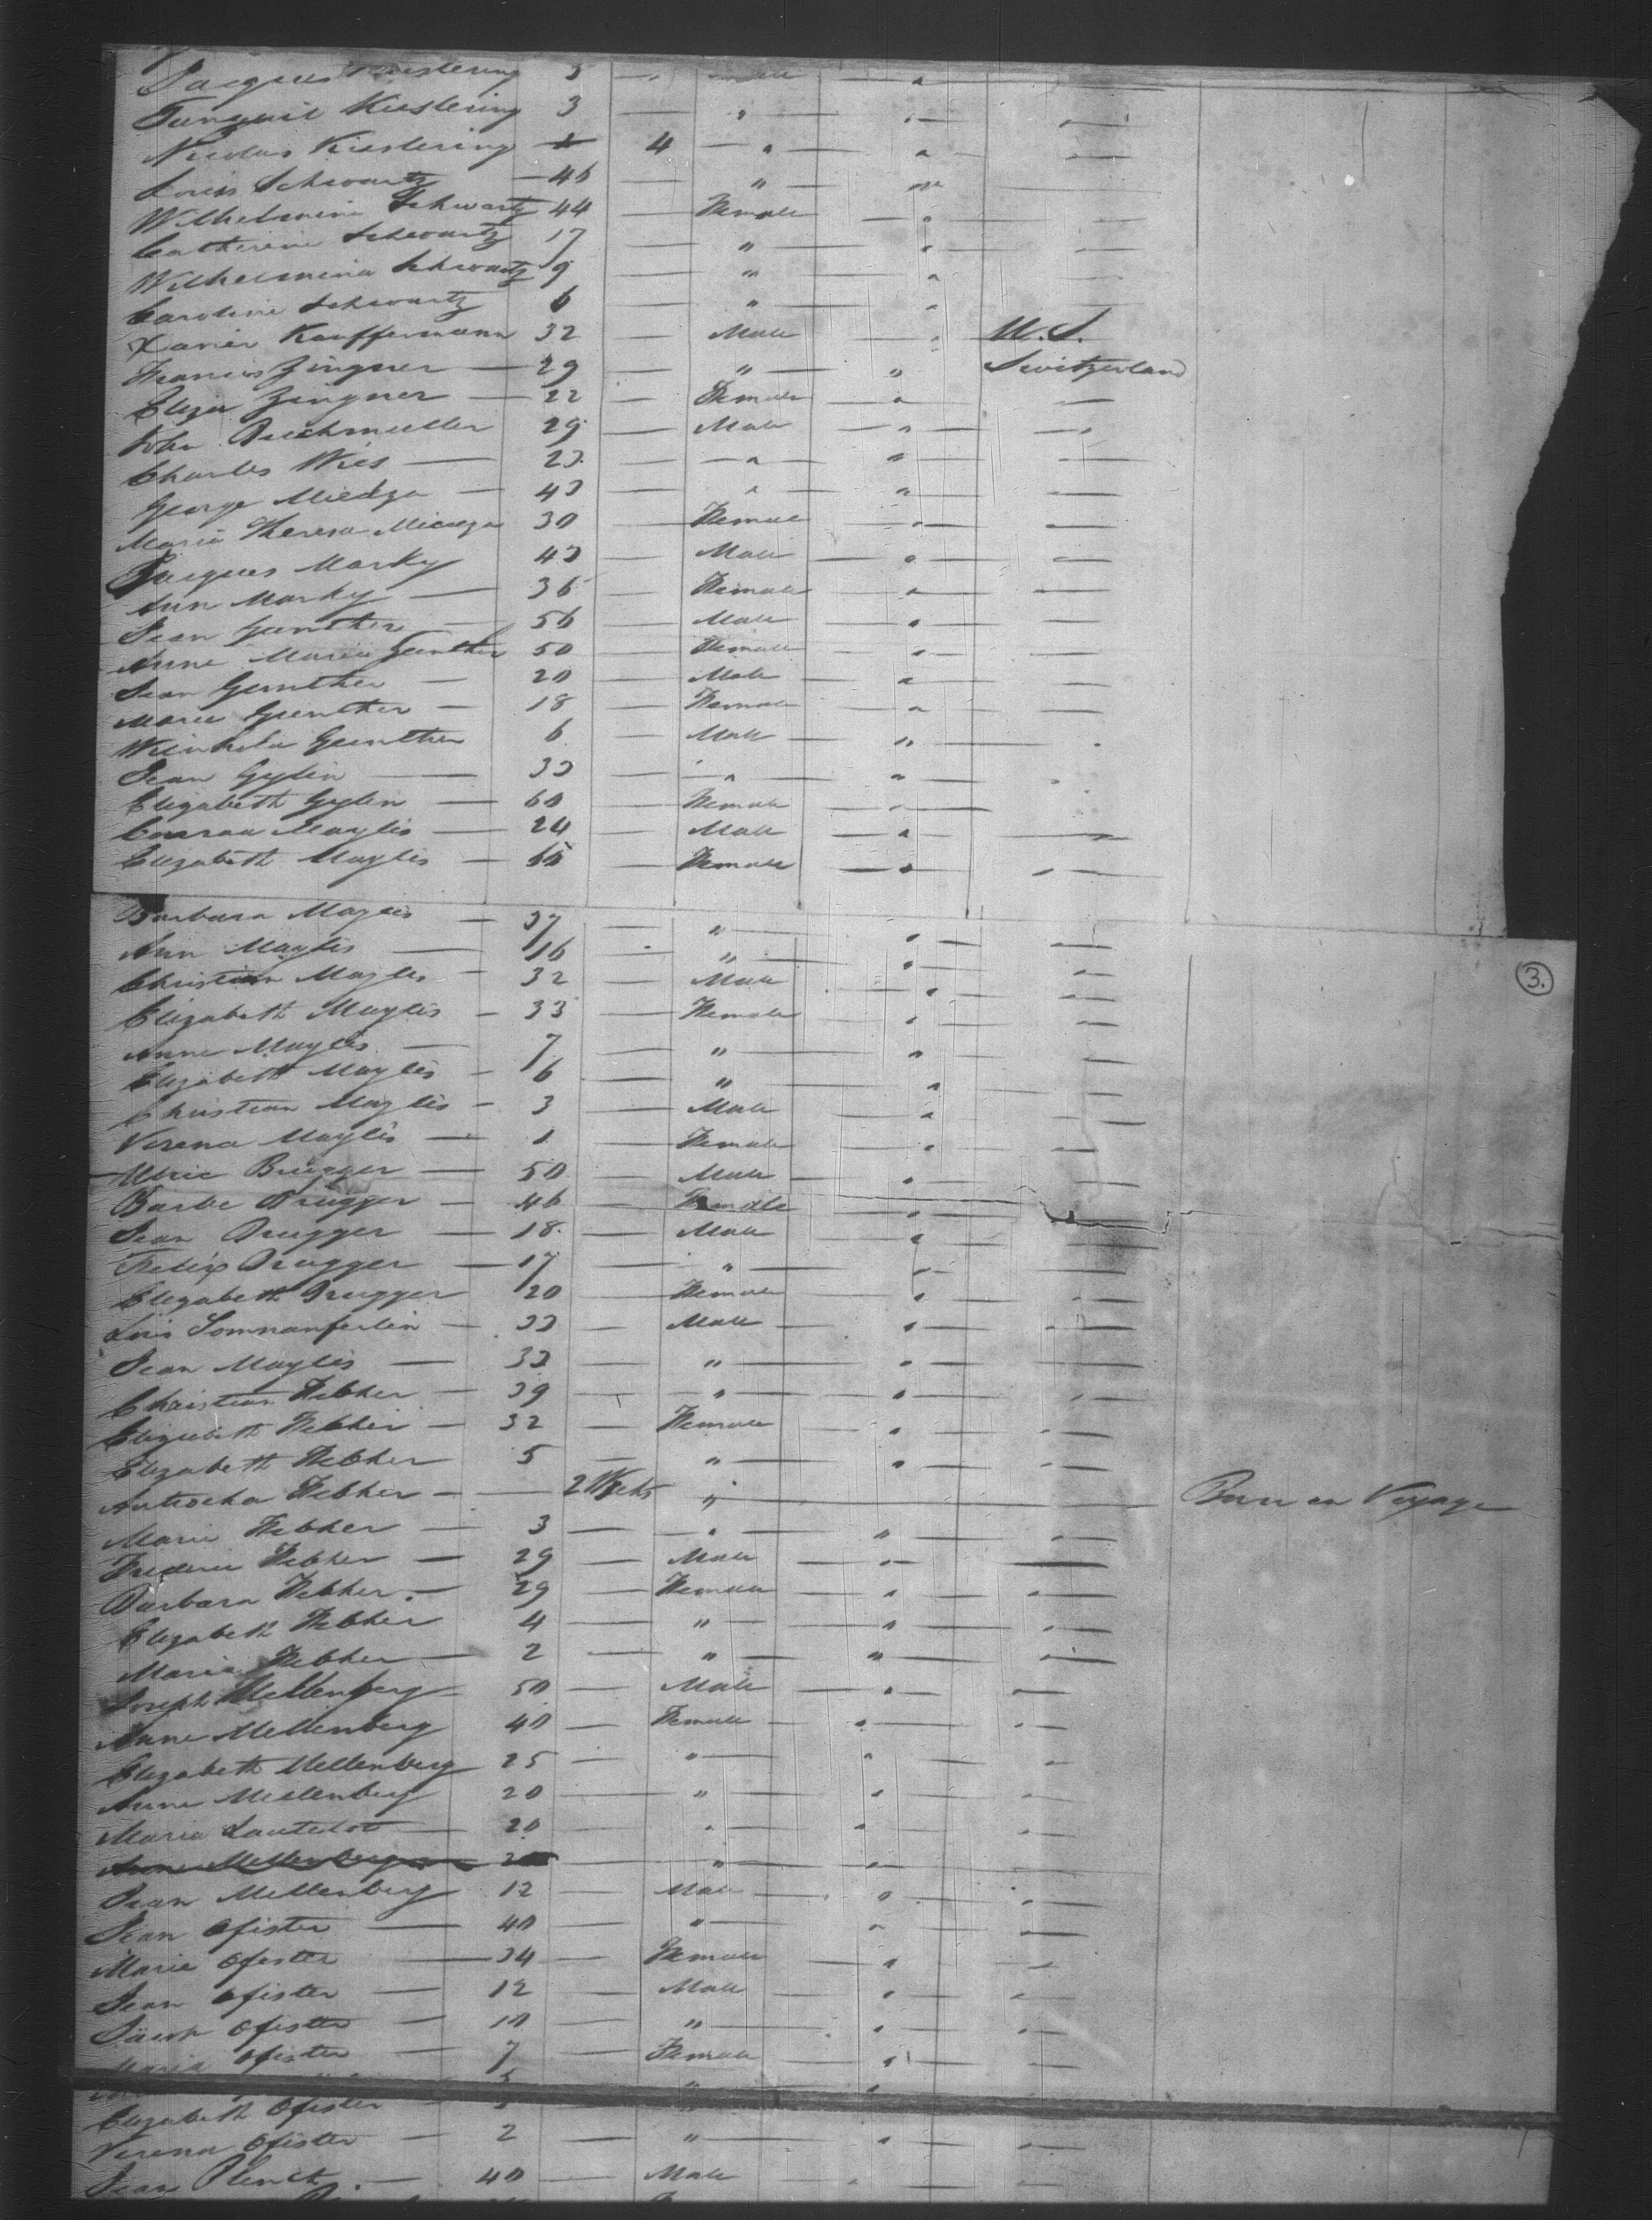 Jacques Kiestering 5 — " Male — "
Kiestering 3 — " — " — " —
Nicolas Kiestering 4 — " — " — " —
Louis Schwartz — 46 — " — " —
Wilhelmine Schwartz 44 — Female — " — " —
Catherine Schwartz 17 — " — " —
Wilhelmina Schwartz 9 — " — " —
Caroline Schwartz 6 — " — " —
Xavier Kauffermann 32 — Male " U.S.
Francis Zingner — 29 — " — " Switzerland
Eliza Zingner — 22 — Female — " —
John Buchmuller 29 — Male — " — "
Charles Wies — 23 — " — " —
George Miedza — 43 — " — " —
Maria Theresa Miedza 30 — Female — " —
Jacques Marky 43 — Male — " —
Ann Marky — 36 — Female — " —
Jean Gunther — 56 — Male — " —
Anne Maria Gunther 50 — Female — " —
Jean Gunther — 20 — Male — " —
Marie Gunther — 18 — Female — " —
Gunther 6 — Male — " —
Jean Gylin — 33 — " — "
Elizabeth Gylin — 60 — Female — " —
Conrad Maylis — 24 — Male — " —
Elizabeth Maylis — — Female — " — " —
Barbara Maylis — 37 — " — " —
Ann Maylis — 16 — " — " —
Christian Maylis — 32 — Male — " —
Elizabeth Maylis — 33 — Female — " —
Anne Maylis — 7 — " — " —
Elizabeth Maylis — 6 — " — " —
Christian Maylis — 3 — Male — " —
Verena Maylis — 1 — Female — " —
Ulric Brugger — 50 — Male — " —
Barbe Brugger — 46 — Female — " —
Jean Brugger — 18 — Male — " —
Felix Brugger — 17 — " — " —
Elizabeth Brugger 20 — Female — " —
Sommanferlin — 33 — Male — " —
Jean Maylis — 32 — " — " —
Christian Febher — 39 — " — " —
Elizabeth Febher — 32 — Female — " —
Elizabeth Febher 5 — " — " —
Febher — 2 Weeks " — Born on Voyage
Marie Febher — 3 — " — " —
Frederic Febher — 29 — Male — " —
Barbara Febher — 29 — Female — " —
Elizabeth Febher 4 — " — " —
Maria Febher — 2 — " — " —
Joseph Mellenberg 50 — Male — " —
Anne Mellenberg 40 — Female — " —
Elizabeth Mellenberg 25 — " — " —
Anne Mellenberg 20 — " — " —
Maria — 20 — " — " —
Anne Mellenberg — " — " —
Jean Mellenberg 12 — Male — " —
Jean Ofister — 40 — " — " —
Maria Ofister — 34 — Female — " —
Jean Ofister — 12 — Male — " —
Ofister — 10 — " — " —
Maria Ofister — 7 — Female — " —
Elizabeth Ofister — " —
Verena Ofister — 2 — " — " —
Jean — 40 — Male — " —
3.